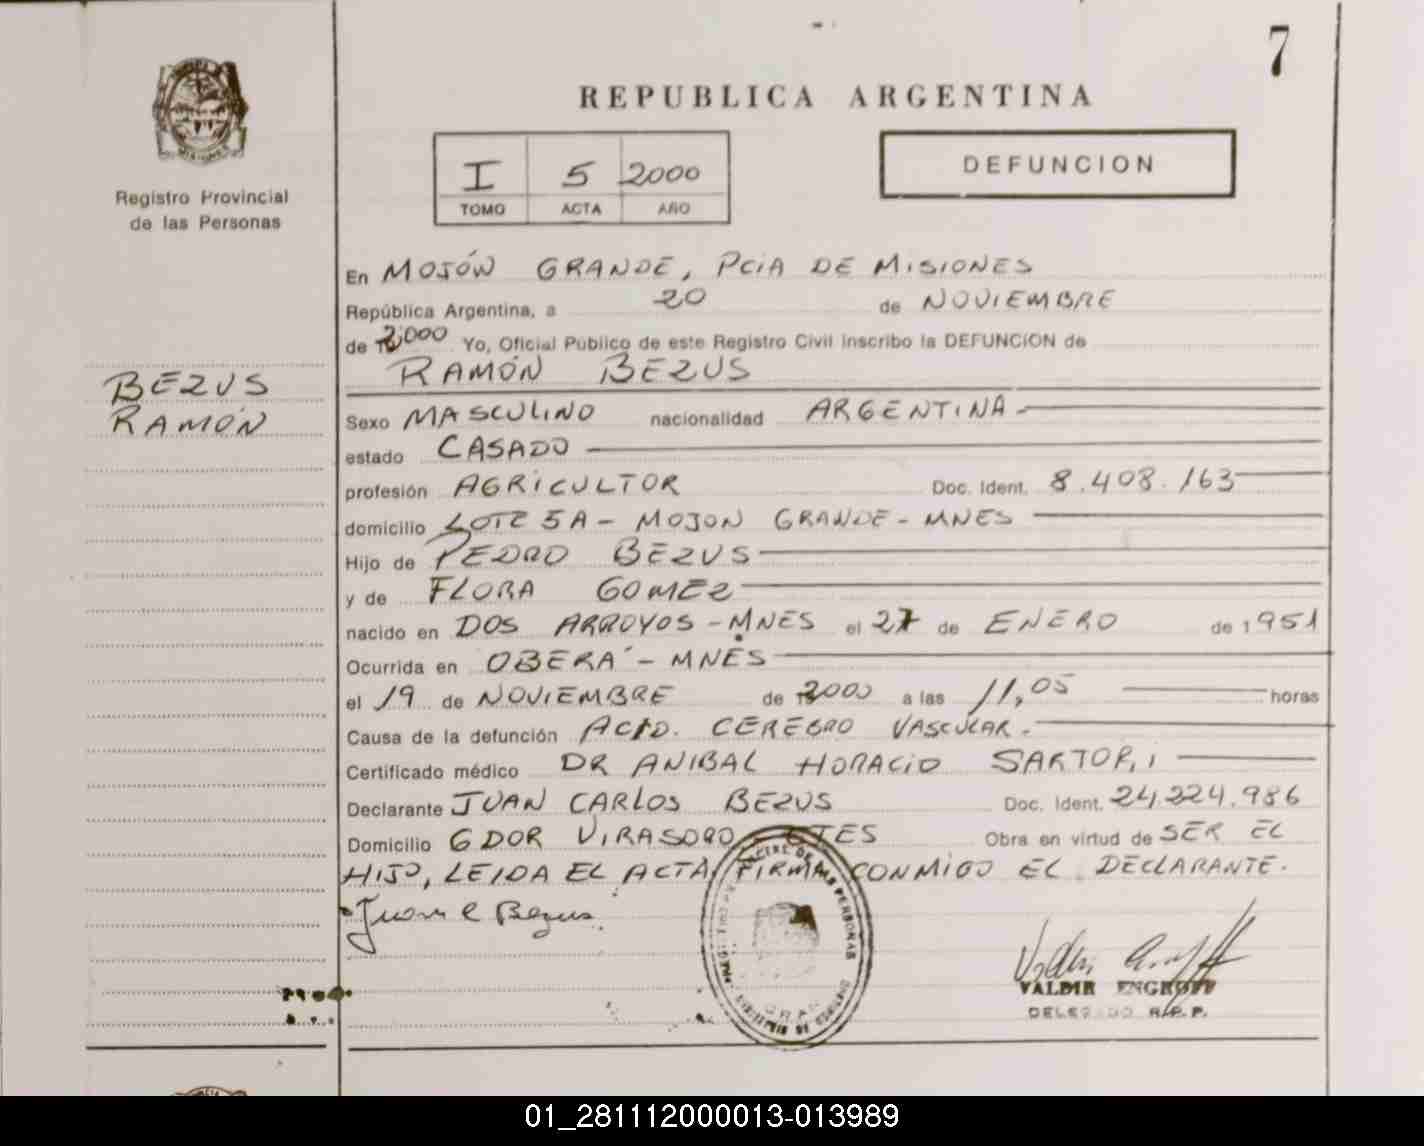 7
REPUBLICA ARGENTINA
MISIONES
I 5 2000
TOMO ACTA AÑO
DEFUNCION
Registro Provincial
de las Personas
BEZUS
RAMÓN
En MOJÓN GRANDE, PCIA DE MISIONES
República Argentina, a 20 de NOVIEMBRE
de 2000 Yo, Oficial Público de este Registro Civil inscribo la DEFUNCION de
RAMÓN BEZUS
Sexo MASCULINO nacionalidad ARGENTINA
estado CASADO
profesión AGRICULTOR Doc. Ident. 8.408.163
domicilio LOTE 5A - MOJON GRANDE - MNES
Hijo de PEDRO BEZUS
y de FLORA GOMEZ
nacido en DOS ARROYOS - MNES el 27 de ENERO de 1951
Ocurrida en OBERÁ - MNES
el 19 de NOVIEMBRE de 2000 a las 11,05 horas
Causa de la defunción ACID. CEREBRO VASCULAR.
Certificado médico DR ANIBAL HORACIO SARTORI
Declarante JUAN CARLOS BEZUS Doc. Ident. 24.224.986
Domicilio GDOR VIRASORO - CTES Obra en virtud de SER EL
HIJO, LEIDA EL ACTA, FIRMA CONMIGO EL DECLARANTE.
Juan C Bezus
VALDIR ENGROFF
DELEGADO R.P.P.
01_281112000013-013989